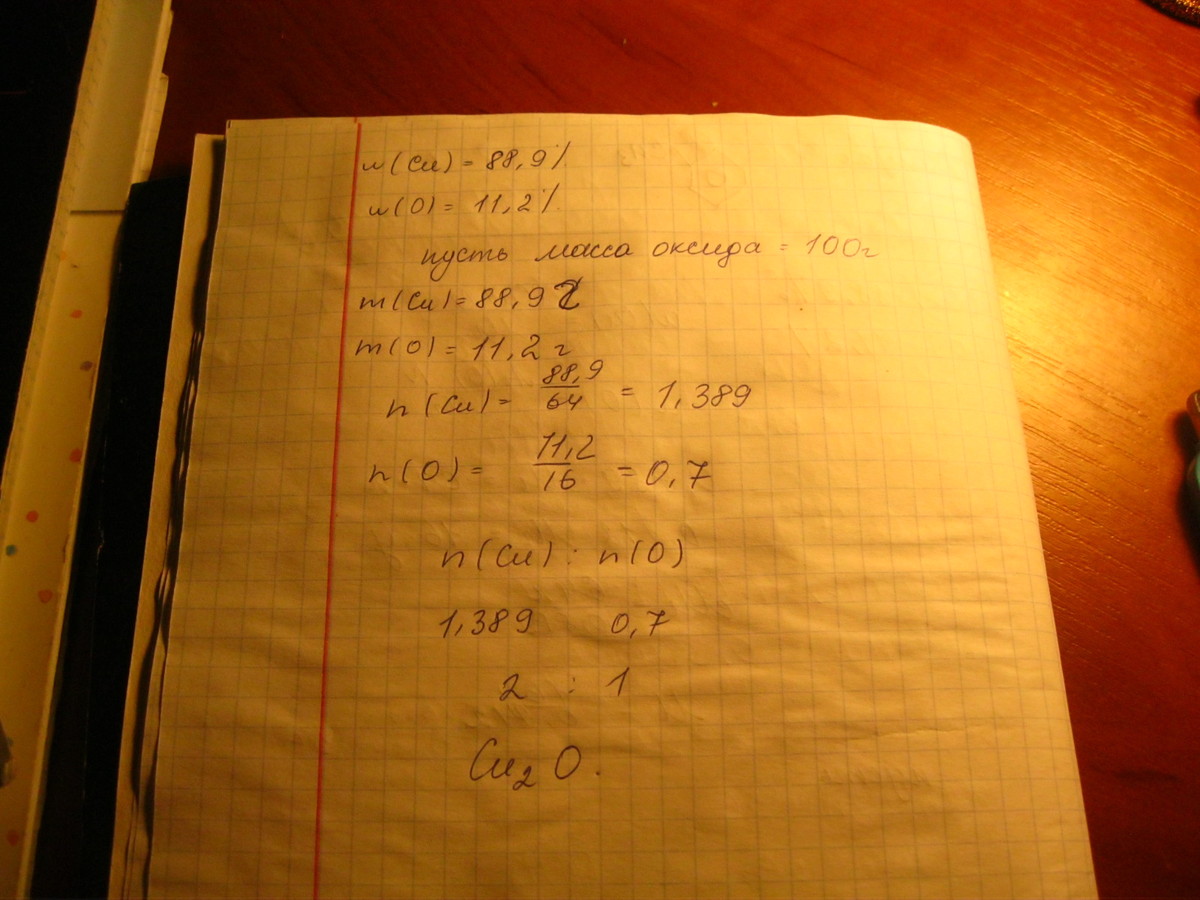 w(Cu) = 88,9%
w(O) = 11,2%.
пусть масса оксида = 100г
m(Cu) = 88,9 г
m(O) = 11,2 г
n(Cu) = 88,9/64 = 1,389
n(O) = 11,2/16 = 0,7
n(Cu) : n(O)
1,389 0,7
2 : 1
Cu₂O.